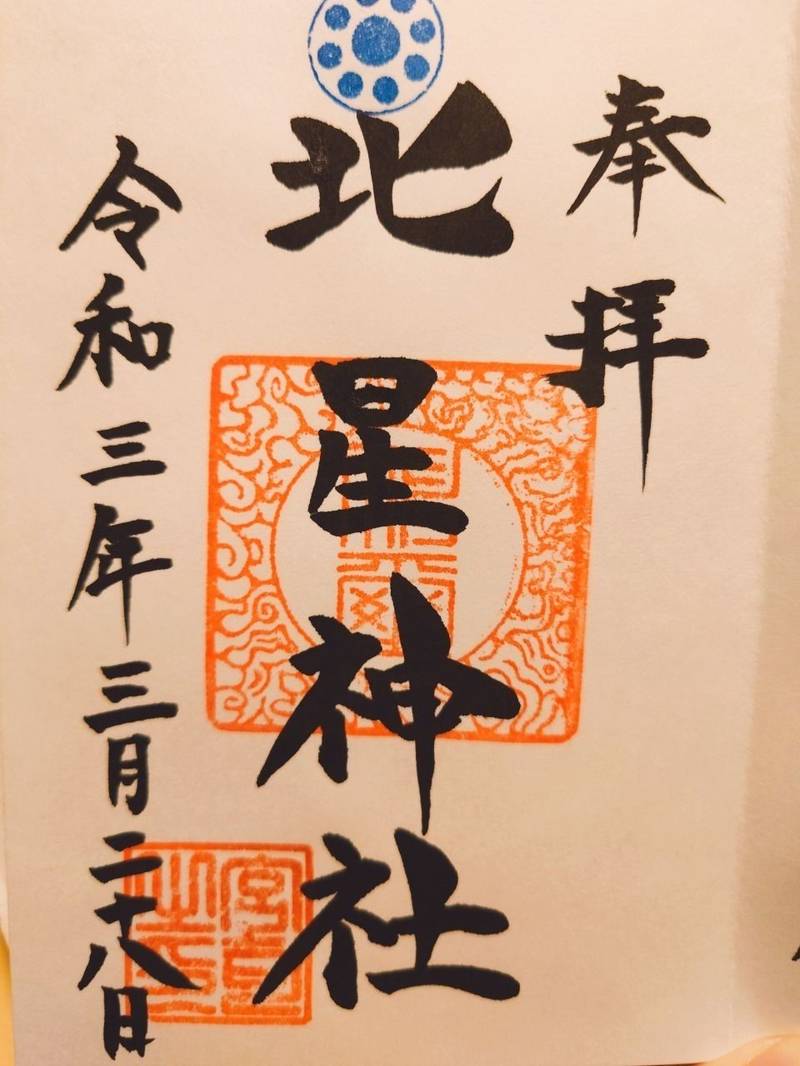 奉拝
北星神社
令和三年三月二十八日